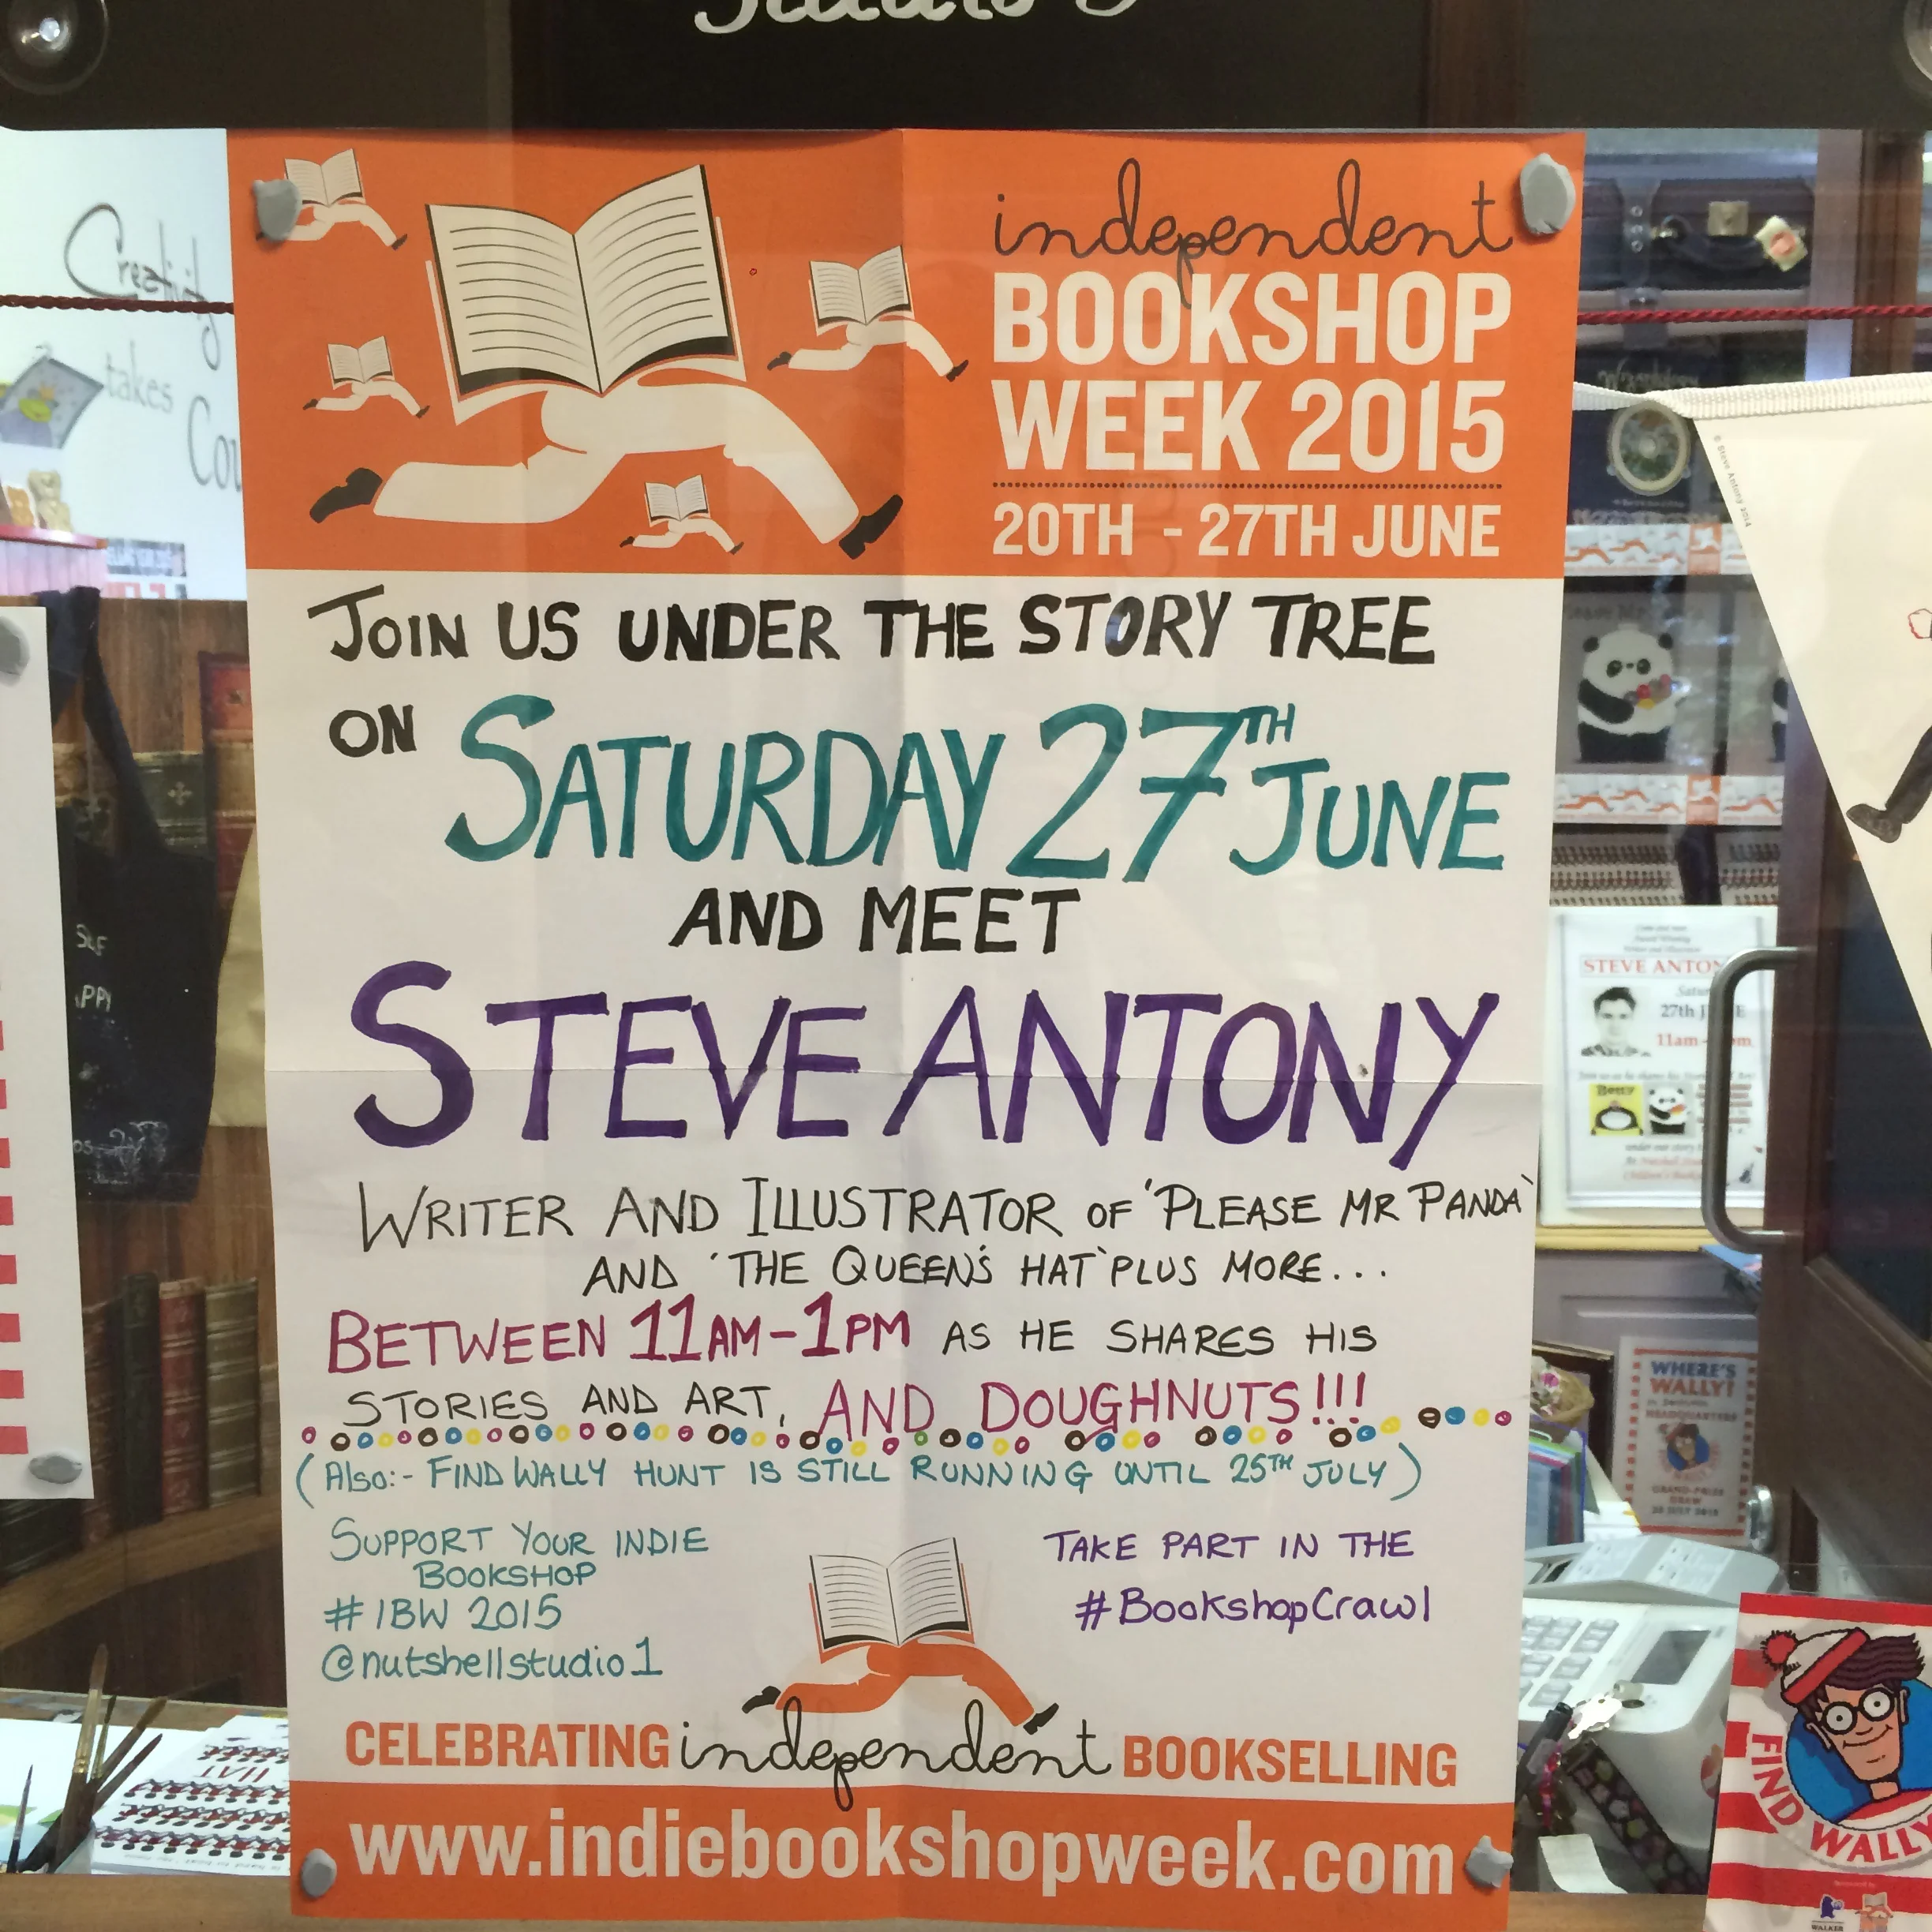 independent
BOOKSHOP
WEEK 2015
20TH - 27TH JUNE
JOIN US UNDER THE STORY TREE
ON SATURDAY 27TH JUNE
AND MEET
STEVE ANTONY
WRITER AND ILLUSTRATOR OF 'PLEASE MR PANDA'
AND 'THE QUEEN'S HAT' PLUS MORE...
BETWEEN 11AM-1PM AS HE SHARES HIS
STORIES AND ART, AND DOUGHNUTS!!!
(ALSO:- FIND WALLY HUNT IS STILL RUNNING UNTIL 25TH JULY)
SUPPORT YOUR INDIE
BOOKSHOP
#IBW 2015
@nutshellstudio1
TAKE PART IN THE
#BookshopCrawl
CELEBRATING independent BOOKSELLING
www.indiebookshopweek.com
Creativity
takes
Cou
© Steve Antony 2014
STEVE ANTON
27th J E
11am - pm
Betty
WHERE'S
WALLY?
HEADQUARTERS
GRAND-PRIZE
DRAW
FIND WALLY
WALKER